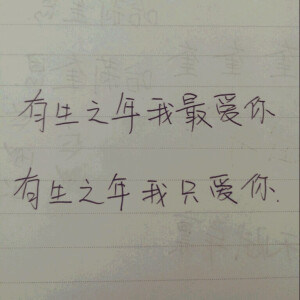 有生之年我最爱你
有生之年我只爱你.